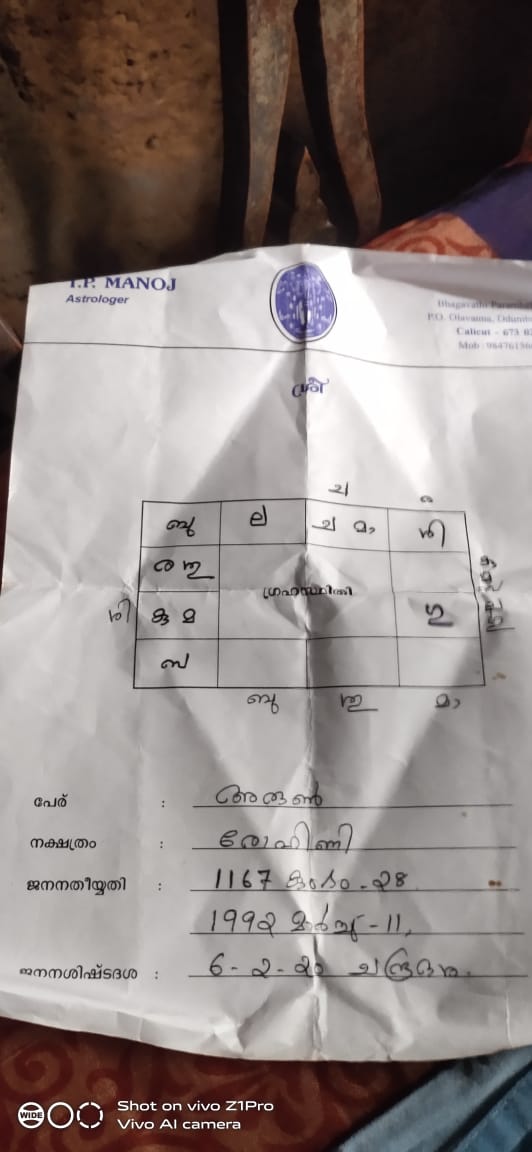 T.P. MANOJ
Astrologer
P.O. Olavanna,
Calicut - 673 0
Mob : 9847615
ശ്രീ
ച
ബു ല ച മാ ശി
ര
ഗ്രഹസ്ഥിതി
ശി കു മ ഗു
സ
ബു മാ
പേര് : അരുൺ
നക്ഷത്രം : രോഹിണി
ജനനതീയ്യതി : 1167 കുംഭം - 28
1992 മാർച്ച് - 11,
ജനനശിഷ്ടദശ : 6 - 2 - 20 ചന്ദ്രദശ.
WIDE
Shot on vivo Z1Pro
Vivo AI camera